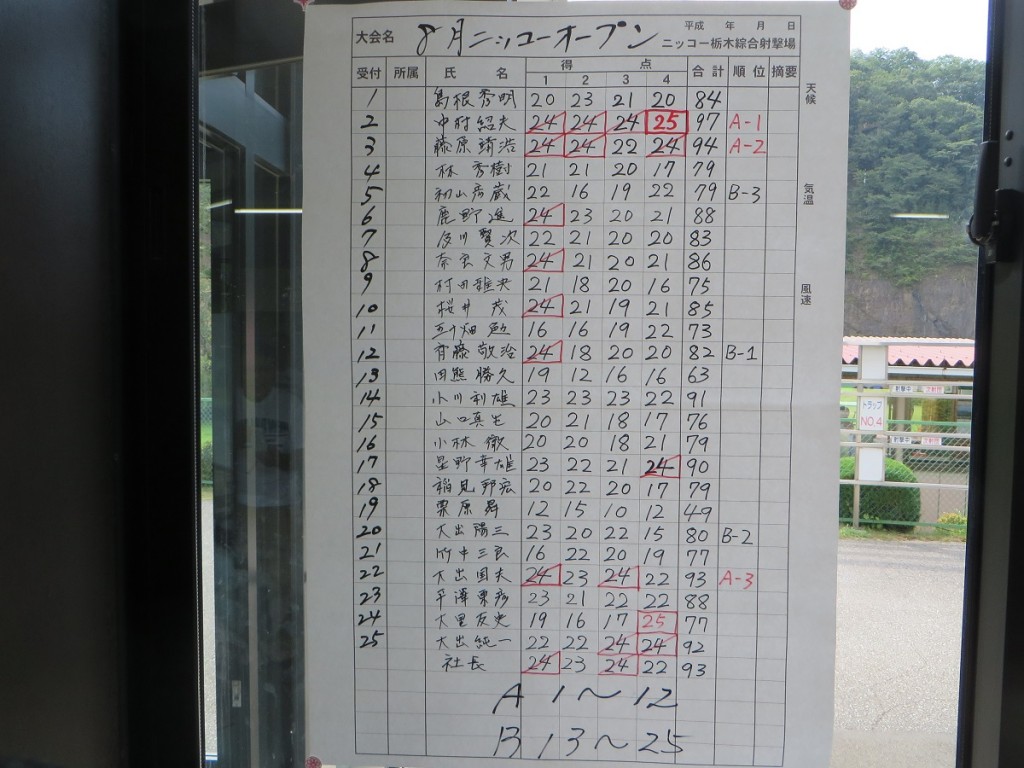 平成 年 月 日
大会名 8月ニッコーオープン ニッコー栃木綜合射撃場
受付 所属 氏 名 得 点 合計 順位 摘要
1 2 3 4
1 島根秀明 20 23 21 20 84
2 中村紹夫 24 24 24 25 97 A-1
3 藤原靖浩 24 24 22 24 94 A-2
4 林 秀樹 21 21 20 17 79
5 初山彦蔵 22 16 19 22 79 B-3
6 鹿野進 24 23 20 21 88
7 及川賢次 22 21 20 20 83
8 奈良文男 24 21 20 21 86
9 村田雄 21 18 20 16 75
10 桜井 茂 24 21 19 21 85
11 畑 16 16 19 22 73
12 齊藤敬治 24 18 20 20 82 B-1
13 田熊勝久 19 12 16 16 63
14 小川利雄 23 23 23 22 91
15 山口真生 20 21 18 17 76
16 小林 徹 20 20 18 21 79
17 星野幸雄 23 22 21 24 90
18 稲見邦宏 20 22 20 17 79
19 栗原昇 12 15 10 12 49
20 大出陽三 23 20 22 15 80 B-2
21 竹中三良 16 22 20 19 77
22 大出国夫 24 23 24 22 93 A-3
23 平澤栗彦 23 21 22 22 88
24 大里友 19 16 17 25 77
25 大出純一 22 22 24 24 92
社長 24 23 24 22 93
A 1〜12
B 13〜25
天候
気温
風速
トラップ
NO.4